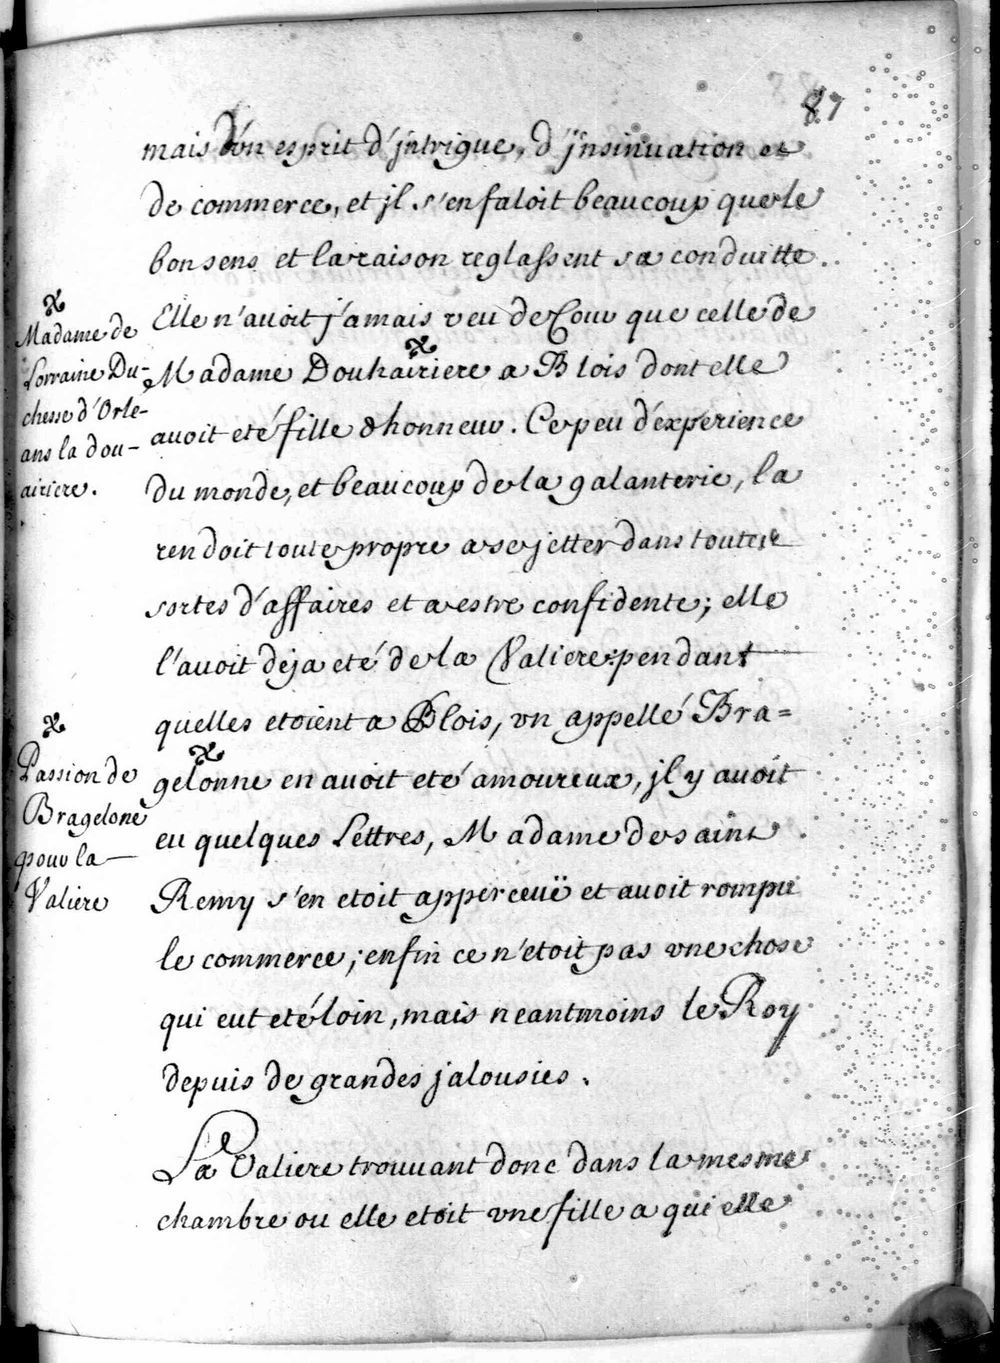 87
mais d'vn esprit d'jntrigue, d'jnsinuation et
de commerce, et jl s'en faloit beaucoup que le
bon sens et la raison reglassent sa conduitte.
Elle n'auoit jamais veu de Cour que celle de
Madame Douhairiere a Blois dont elle
auoit eté fille d'honneur. Ce peu d'experience
du monde, et beaucoup de la galanterie, la
rendoit toute propre a se jetter dans toutes
sortes d'affaires et a estre confidente; elle
l'auoit deja eté de la Valiere pendant
quelles etoient a Blois, vn appellé Bra=
gelonne en auoit eté amoureux, jl y auoit
eu quelques Lettres, Madame de saint
Remy s'en etoit apperceuë et auoit rompu
le commerce; enfin ce n'etoit pas vne chose
qui eut eté loin, mais neantmoins le Roy
depuis de grandes jalousies.
La Valiere trouuant donc dans la mesme
chambre ou elle etoit vne fille a qui elle
Madame de
Lorraine Du-
chesse d'Orle-
ans la dou-
airiere.
Passion de
Bragelone
pour la
Valiere